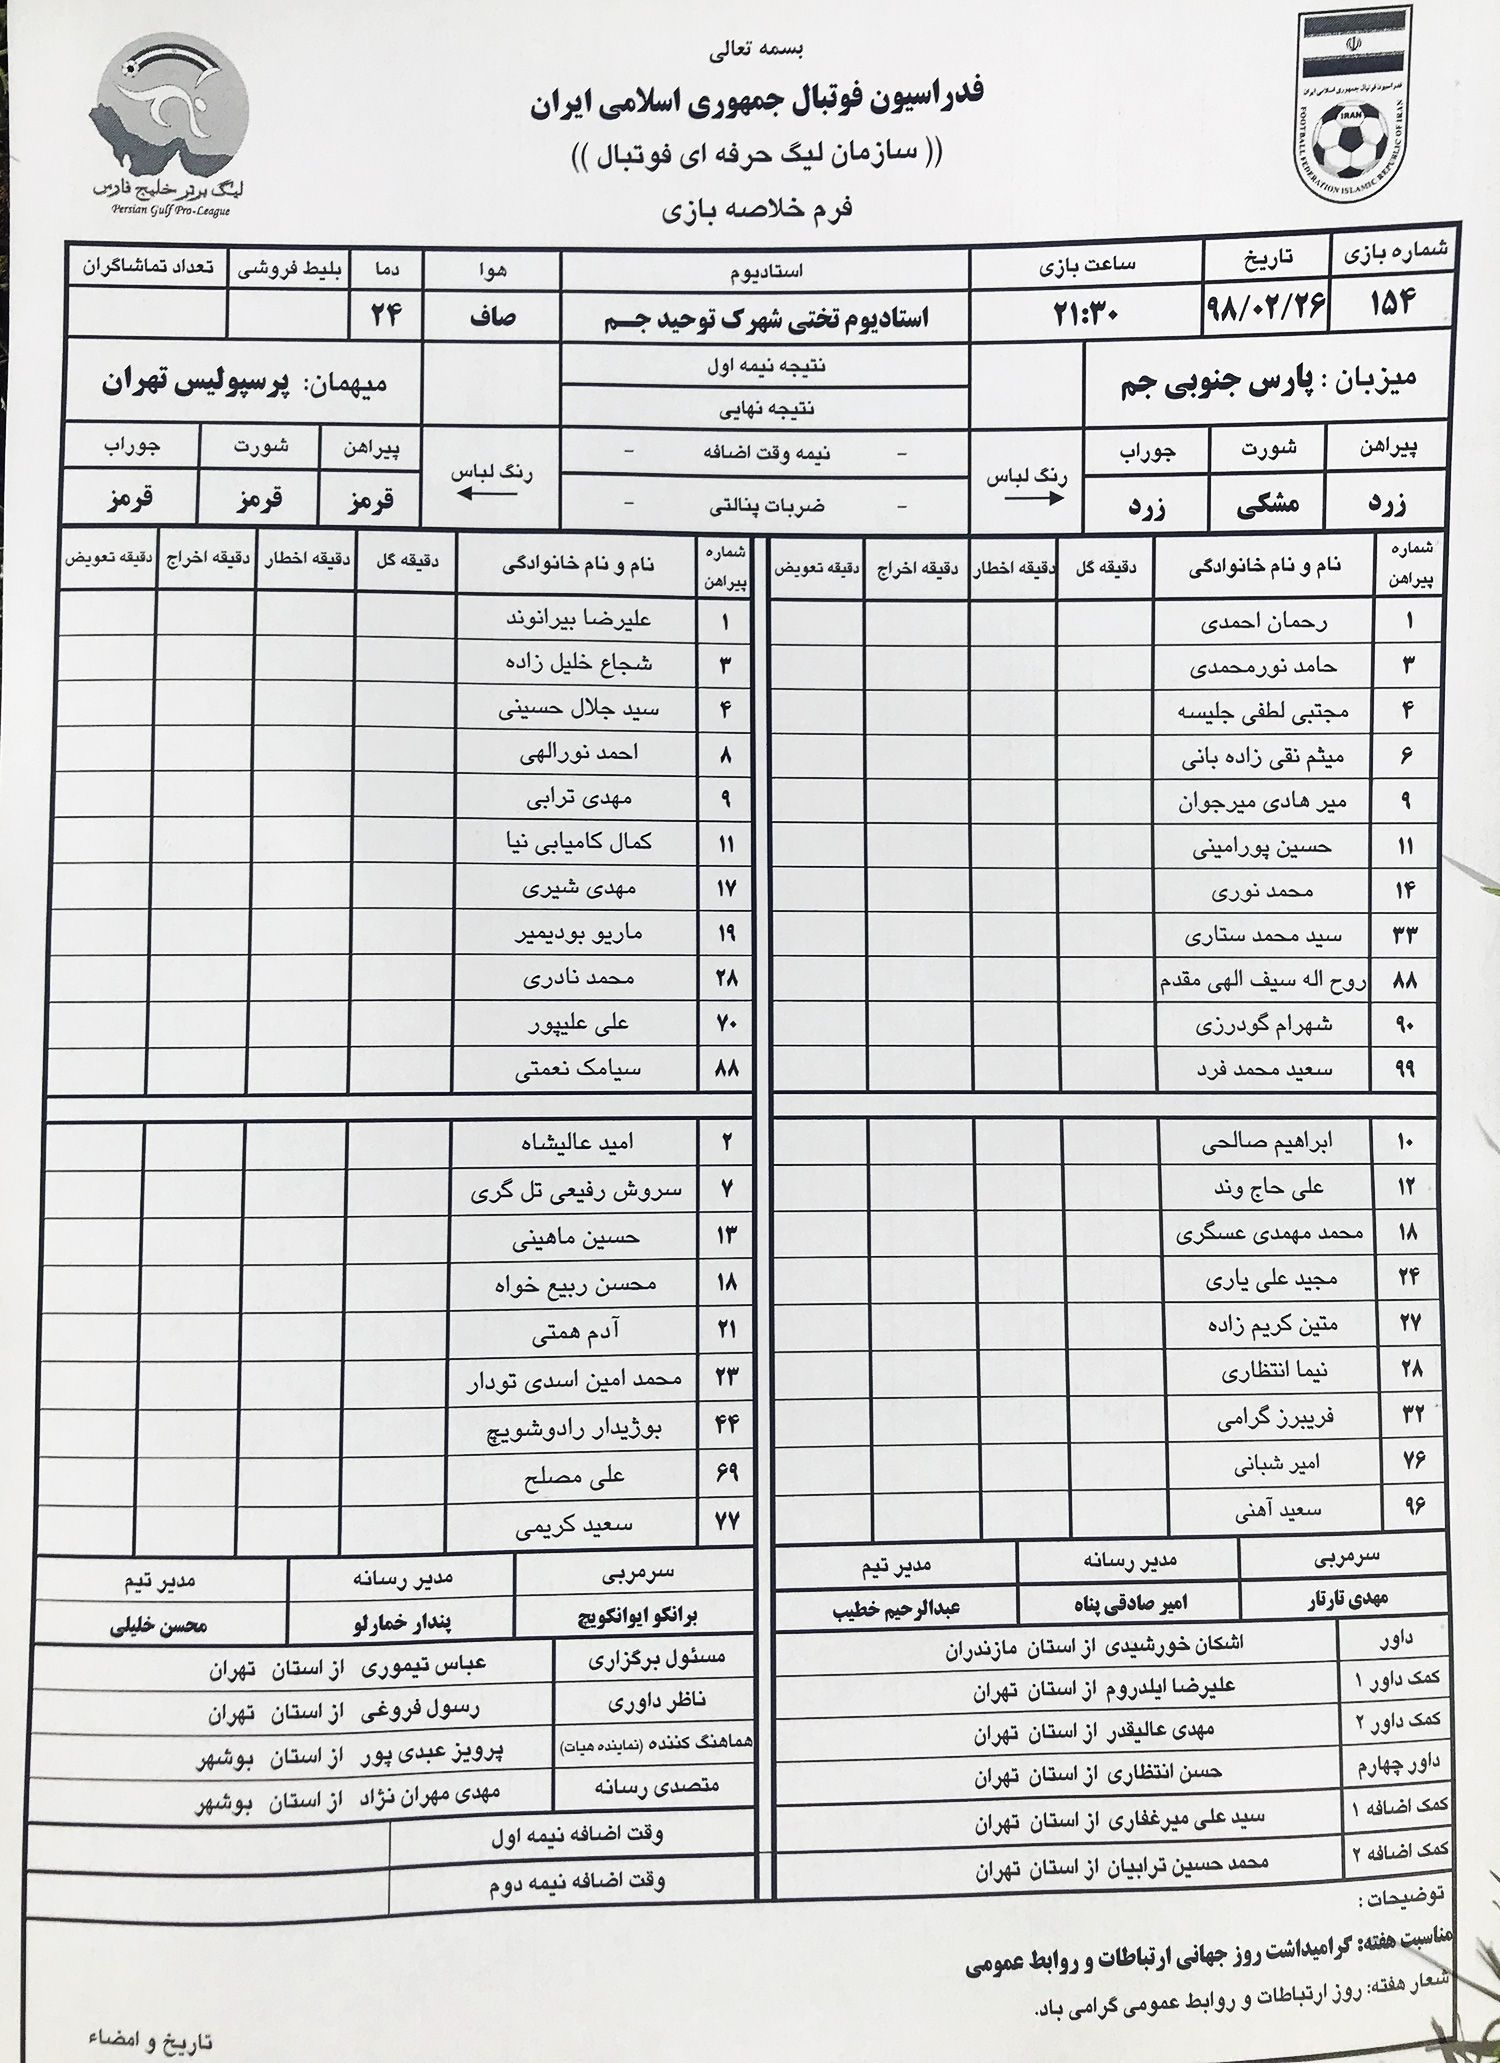 بسمه تعالی
فدراسیون فوتبال جمهوری اسلامی ایران
(( سازمان لیگ حرفه ای فوتبال ))
فرم خلاصه بازی
لیگ برتر خلیج فارس
Persian Gulf Pro-League
فدراسیون فوتبال جمهوری اسلامی ایران
IRAN
FOOTBALL FEDERATION ISLAMIC REPUBLIC OF IRAN
شماره بازی تاریخ ساعت بازی استادیوم هوا دما بلیط فروشی تعداد تماشاگران
۱۵۴ ۹۸/۰۲/۲۶ ۲۱:۳۰ استادیوم تختی شهرک توحید جـــم صاف ۲۴
میزبان : پارس جنوبی جم نتیجه نیمه اول میهمان: پرسپولیس تهران
نتیجه نهایی
پیراهن شورت جوراب رنگ لباس - نیمه وقت اضافه - رنگ لباس پیراهن شورت جوراب
زرد مشکی زرد - ضربات پنالتی - قرمز قرمز قرمز
شماره پیراهن نام و نام خانوادگی دقیقه گل دقیقه اخطار دقیقه اخراج دقیقه تعویض شماره پیراهن نام و نام خانوادگی دقیقه گل دقیقه اخطار دقیقه اخراج دقیقه تعویض
۱ رحمان احمدی ۱ علیرضا بیرانوند
۳ حامد نورمحمدی ۳ شجاع خلیل زاده
۴ مجتبی لطفی جلیسه ۴ سید جلال حسینی
۶ میثم نقی زاده بانی ۸ احمد نورالهی
۹ میر هادی میرجوان ۹ مهدی ترابی
۱۱ حسین پورامینی ۱۱ کمال کامیابی نیا
۱۴ محمد نوری ۱۷ مهدی شیری
۳۳ سید محمد ستاری ۱۹ ماریو بودیمیر
۸۸ روح اله سیف الهی مقدم ۲۸ محمد نادری
۹۰ شهرام گودرزی ۷۰ علی علیپور
۹۹ سعید محمد فرد ۸۸ سیامک نعمتی
۱۰ ابراهیم صالحی ۲ امید عالیشاه
۱۲ علی حاج وند ۷ سروش رفیعی تل گری
۱۸ محمد مهمدی عسگری ۱۳ حسین ماهینی
۲۴ مجید علی یاری ۱۸ محسن ربیع خواه
۲۷ متین کریم زاده ۲۱ آدم همتی
۲۸ نیما انتظاری ۲۳ محمد امین اسدی تودار
۳۲ فریبرز گرامی ۴۴ بوژیدار رادوشویچ
۷۶ امیر شبانی ۶۹ علی مصلح
۹۶ سعید آهنی ۷۷ سعید کریمی
سرمربی مدیر رسانه مدیر تیم سرمربی مدیر رسانه مدیر تیم
مهدی تارتار امیر صادقی پناه عبدالرحیم خطیب برانکو ایوانکویچ پندار خمارلو محسن خلیلی
داور اشکان خورشیدی از استان مازندران مسئول برگزاری عباس تیموری از استان تهران
کمک داور ۱ علیرضا ایلدروم از استان تهران ناظر داوری رسول فروغی از استان تهران
کمک داور ۲ مهدی عالیقدر از استان تهران هماهنگ کننده (نماینده هیات) پرویز عبدی پور از استان بوشهر
داور چهارم حسن انتظاری از استان تهران متصدی رسانه مهدی مهران نژاد از استان بوشهر
کمک اضافه ۱ سید علی میرغفاری از استان تهران وقت اضافه نیمه اول
کمک اضافه ۲ محمد حسین ترابیان از استان تهران وقت اضافه نیمه دوم
توضیحات :
مناسبت هفته: گرامیداشت روز جهانی ارتباطات و روابط عمومی
شعار هفته: روز ارتباطات و روابط عمومی گرامی باد.
تاریخ و امضاء